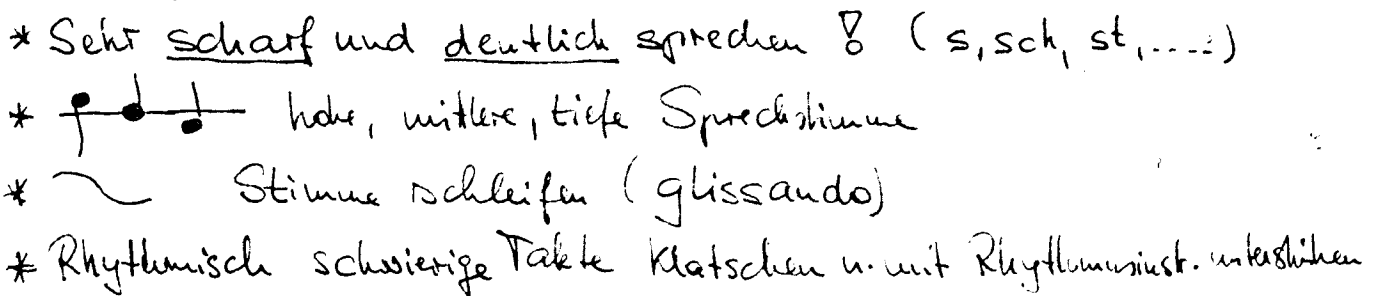 * Sehr scharf und deutlich sprechen! (s, sch, st,....)
* hohe, mittlere, tiefe Sprechstimme
* Stimme schleifen (glissando)
* Rhythmisch schwierige Takte klatschen u. mit Rhythmusinst. unterstützen